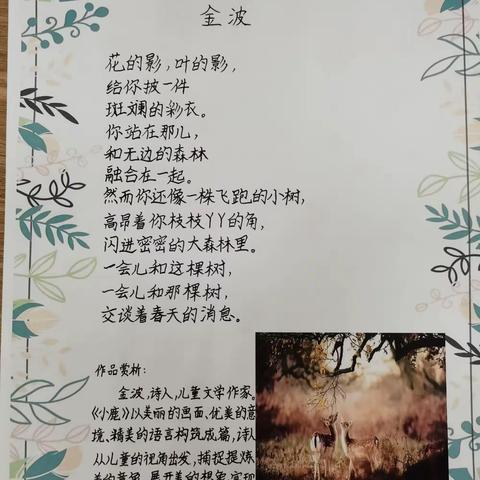 金波
花的影，叶的影，
给你披一件
斑斓的彩衣。
你站在那儿，
和无边的森林
融合在一起。
然而你还像一株飞跑的小树，
高昂着你枝枝丫丫的角，
闪进密密的大森林里。
一会儿和这棵树，
一会儿和那棵树，
交谈着春天的消息。
作品赏析：
金波，诗人，儿童文学作家。
《小鹿》以美丽的画面、优美的意
境、精美的语言构筑成篇，诗人
从儿童的视角出发，捕捉提炼
美的意象，展开美的想象，实现